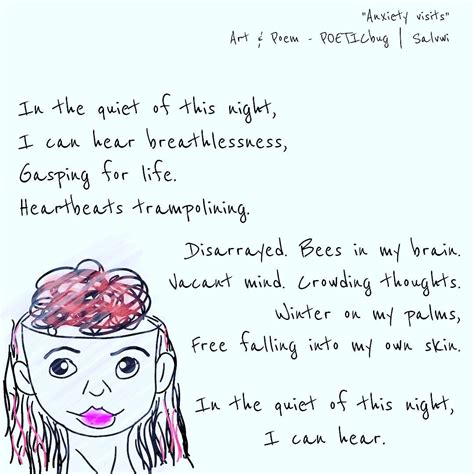 "Anxiety visits"
Art & Poem - POETICbug | Salvwi
In the quiet of this night,
I can hear breathlessness,
Gasping for life.
Heartbeats trampolining.
Disarrayed. Bees in my brain.
Vacant mind. Crowding thoughts.
Winter on my palms,
Free falling into my own skin.
In the quiet of this night,
I can hear.